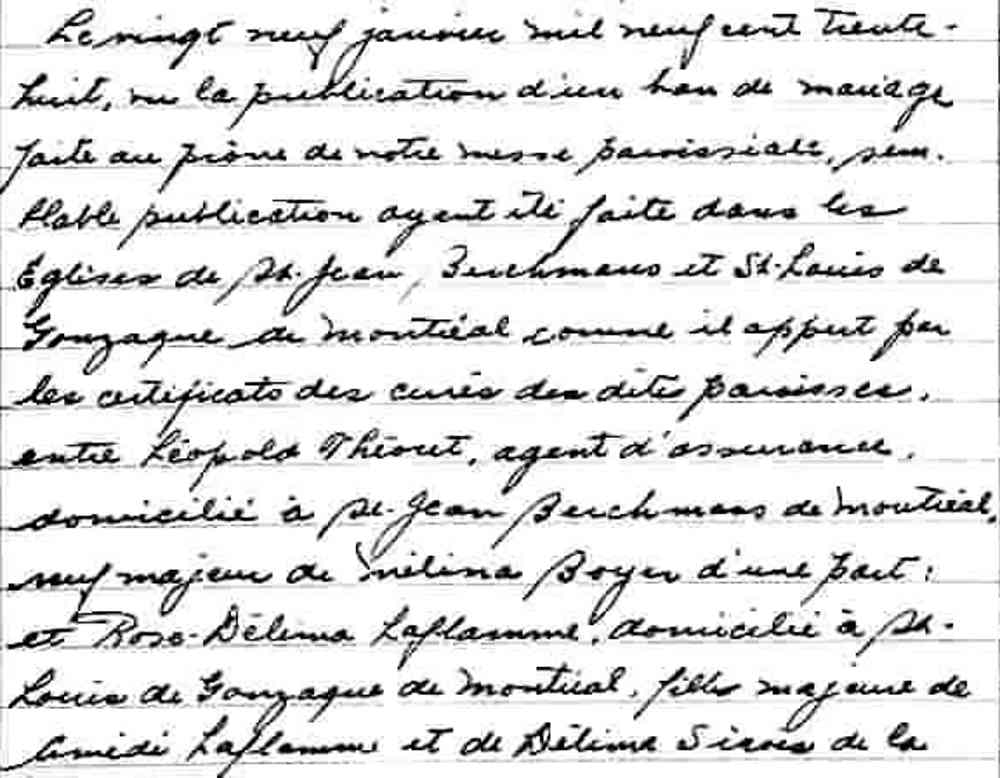 Le vingt neuf janvier mil neuf cent trente-
huit, vu la publication d'un ban de mariage
faite au prône de notre messe paroissiale, sem-
blable publication ayant été faite dans les
Églises de St-Jean, Berchmans et St-Louis de
Gonzague de Montréal comme il appert par
les certificats des curés des dites paroisses,
entre Léopold Théoret, agent d'assurance,
domicilié à St-Jean Berchmans de Montréal,
veuf majeur de Mélina Boyer d'une part:
et Rose-Délima Laflamme, domicilié à St-
Louis de Gonzague de Montréal, fille majeure de
Amédé Laflamme et de Délima Sirois de la